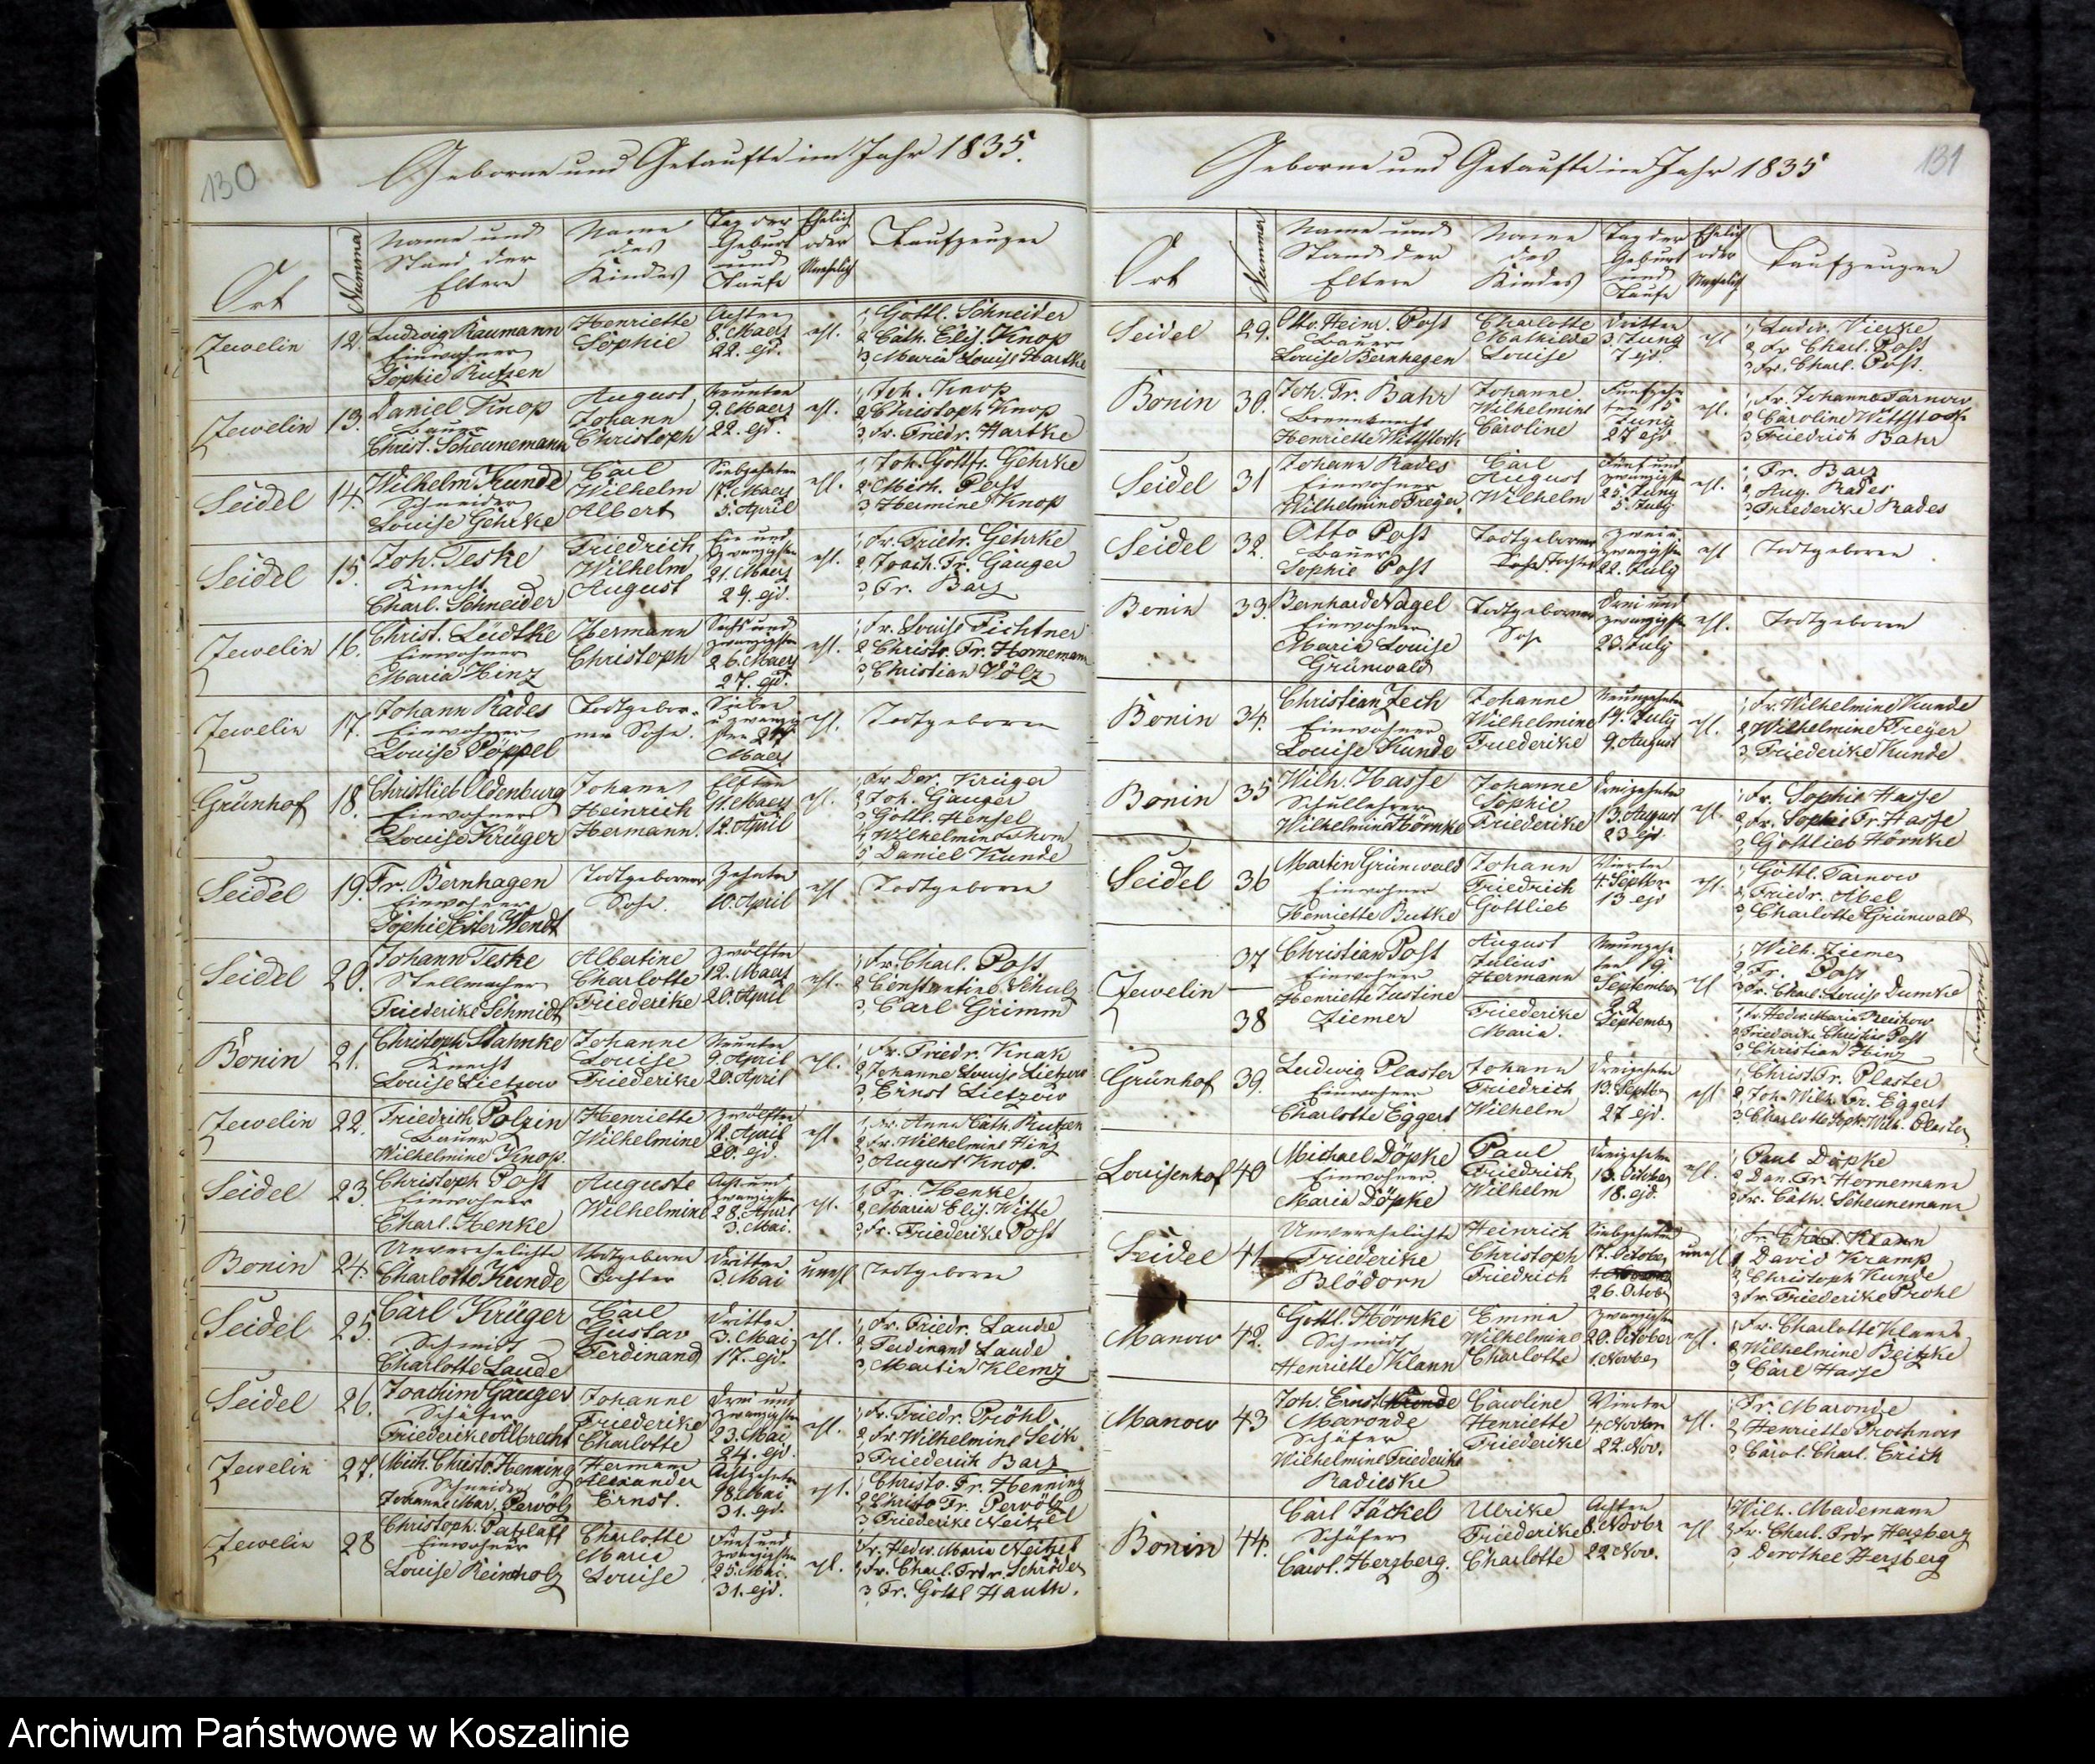 130
Geborne und Getaufte im Jahr 1835.
Ort
Nummer
Name und Stand der Eltern
Name des Kindes
Tag der Geburt und Taufe
Ehelich oder Unehelich
Taufzeugen
Jewelin 12. Ludwig Raumann Einwohner Sophie Rutzen
Henriette Sophie
Achten 8. Maerz 22. ejd.
ehl.
1, Gottl. Schneider
2, Cath. Elis. Knop
3, Maria Louise Hartke
Jewelin 13. Daniel Knop Bauer Christ. Scheunemann
August Johann Christoph
Neunten 9. Maerz 22. ejd.
ehl.
1, Joh. Knop
2, Christoph Knop
3, Fr. Friedr. Hartke
Seidel 14. Wilhelm Kunde Schneider Louise Gehrke
Carl Wilhelm Albert
Siebzehnten 17. Maerz 5. April
ehl.
1, Joh. Gottfr. Gehrke
2, Mich. Post
3, Hermine Knop
Seidel 15. Joh. Teske Knecht Charl. Schneider
Friedrich Wilhelm August
Ein und zwanzigsten 21. Maerz 29. ejd.
ehl.
1, Fr. Friedr. Gehrke
2, Joach. Fr. Gauger
3, Fr. Barz
Jewelin 16. Christ. Lüdtke Einwohner Maria Hinz
Hermann Christoph
Sechs und zwanzigsten 26. Maerz 27. ejd.
ehl.
1, Fr. Louise Fichtner
2, Christ. Fr. Hornemann
3, Christian Völz
Jewelin 17. Johann Rades Einwohner Louise Pöppel
Todtgeborner Sohn.
Sieben u zwanzigsten 27 Maerz
ehl.
Todtgeboren
Grünhof 18. Christlieb Oldenburg Einwohner Louise Krüger
Johann Heinrich Hermann.
Elften 11. Maerz 12. April
ehl.
1, Fr. Dor. Krüger
2, Joh. Gauger
3, Gottl. Hensel
4, Wilhelmine
5, Daniel Kunde
Seidel 19. Fr. Bernhagen Einwohner Sophie Ester Wendt
Todtgeborner Sohn.
Zehnten 10. April
ehl
Todtgeboren
Seidel 20. Johann Teske Stellmacher Friederike Schmidt
Albertine Charlotte Friederike
Zwölften 12. Maerz 20. April
ehl.
1, Fr. Charl. Post
2, Constantine Schulz
3, Carl Grimm
Bonin 21. Christoph Stahnke Knecht Louise Lietzow
Johanne Louise Friederike
Neunten 9. April 20. April
ehl.
1, Fr. Friedr. Knak
2, Johanne Louise Lietzow
3, Ernst Lietzow
Jewelin 22. Friedrich Polzin Bauer Wilhelmine Knop.
Henriette Wilhelmine
Zwölften 12. April 20. ejd.
ehl.
1, Fr. Anna Cath. Rutzen
2, Fr. Wilhelmine Hinz
3, August Knop.
Seidel 23. Christoph Post Einwohner Charl. Henke
Auguste Wilhelmine
Acht und zwanzigsten 28. April 3. Mai.
ehl.
1, Fr. Henke
2, Maria Elis. Witte
3, Fr. Friederike Post
Bonin 24. Unverehelichte Charlotte Kunde
Todtgeborne Tochter
Dritten 3. Mai
unehl
Todtgeboren
Seidel 25. Carl Krüger Schmidt Charlotte Laude
Carl Gustav Ferdinand
Dritten 3. Mai 17. ejd.
ehl.
1, Fr. Friedr. Laude
2, Ferdinand Laude
3, Martin Klemz
Seidel 26. Joachim Gauger Schäfer Friederike Albrecht
Johanne Friederike Charlotte
Drei und zwanzigsten 23. Mai 24. ejd.
ehl.
1, Fr. Friedr. Pröhl
2, Fr. Wilhelmine Seik
3, Friederich Barz
Jewelin 27. Mich. Christo. Henning Schneider Johanne Mar. Pervölz
Hermann Alexander Ernst.
Achtzehnten 18. Mai 31. ejd.
ehl.
1, Christo. Fr. Henning
2, Christo Fr. Pervölz
3, Friederike Neitzel
Jewelin 28 Christoph. Patzlaff Einwohner Louise Reinholz
Charlotte Maria Louise
Fünf und zwanzigsten 25. Mai. 31. ejd.
ehl.
1, Fr. Hedw. Maria Neitzel
2, Fr. Charl. Frdr. Schröder
3, Fr. Gottl Hauth.
131
Geborne und Getaufte im Jahr 1835
Ort
Nummer
Name und Stand der Eltern
Name des Kindes
Tag der Geburt und Taufe
Ehelich oder Unehelich
Taufzeugen
Seidel 29. Otto. Heinr. Post Bauer Louise Bernhagen
Charlotte Mathilde Louise
Dritten 3. Juny 7 ejd.
ehl
1, Ludw. Vierke
2, Fr. Charl. Post
3, Fr. Charl. Post.
Bonin 30. Joh. Fr. Bahr Henriette Wittstock
Johanne. Wilhelmine Caroline
Funfzehnten 15 Juny 27 ejd
ehl.
1, Fr. Johanne Tarnow
2, Caroline Wittstock
3, Friedrich Bahr
Seidel 31 Johann Rades Einwohner Wilhelmine Treger.
Carl August Wilhelm
Fünf und zwanzigsten 25. Juny 5. July
ehl.
1, Fr. Barz
2, Aug. Rades
3, Friederike Rades
Seidel 32. Otto Post Bauer Sophie Post
Todtgeborne Tochter
Zwei u. zwanzigsten 22. July
ehl
Todtgeboren
Bonin 33. Bernhard Nagel Einwohner Maria Louise Grünwald
Todtgeborner Sohn
Drei und zwanzigsten 23. July
ehl.
Todtgeboren
Bonin 34. Christian Zech Einwohner Louise Kunde
Johanne Wilhelmine Friederike
Neunzehnten 19. July 9. August
ehl.
1, Fr. Wilhelmine Kunde
2, Wilhelmine Treger
3, Friederike Kunde
Bonin 35 Wilh. Hasse Schullehrer Wilhelmine Hörnke
Johanne Sophie Friederike
Dreizehnten 13. August 23 ejd.
ehl.
1, Fr. Sophie Hasse
2, Fr. Sophie Fr. Hasse
3, Gottlieb Hörnke
Seidel 36 Martin Grünwald Einwohner Henriette Butke
Johann Friedrich Gottlieb
Vierten 4. Septbr 13 ejd
ehl.
1, Gottl. Tarnow
2, Friedr. Abel
3, Charlotte Grünwald
Jewelin 37 38 Christian Post Einwohner Henriette Justine Ziemer
August Julius Hermann
Neunzehnten 19. September
22 September
ehl
1, Wilh. Ziemer
2, Fr. Post
3, Fr. Charl. Louise Dumke
Friederike Maria.
1, Fr. Hedw. Maria
2, Friederike Christine Post
3, Christian Hinz
Zwillinge
Grünhof 39. Ludwig Plaster Einwohner Charlotte Eggert
Johann Friedrich Wilhelm
Dreizehnten 13. Septbr 27 ejd.
ehl
1, Christ. Fr. Plaster
2, Joh. Wilh. Fr. Eggert
3, Charlotte Soph. Wilh. Plaster
Louisenhof 40 Michael Döpke Einwohner Maria Döpke
Paul Friedrich Wilhelm
Dreizehnten 13. October 18. ejd.
ehl.
1, Paul Döpke
2, Dan. Fr. Hornemann
3, Fr. Cath. Scheunemann
Seidel 41. Unverehelichte Friederike Blödorn
Heinrich Christoph Friedrich
Siebzehnten 17. October 26. Octob
unehl
Fr. Christ. Klann
1, David Kramp
2, Christoph Kunde
3, Fr. Friederike Prohl
Manow 42. Gottl. Hörnke Schmidt Henriette Klann
Emma Wilhelmine Charlotte
Zwanzigsten 20. October 1. Novber
ehl.
1, Fr. Charlotte Klann
2, Wilhelmine Beitzke
3, Carl Hasse
Manow 43 Joh. Ernst Maronde Schäfer Wilhelmine Friederike Radieske
Caroline Henriette Friederike
Vierten 4. Novber 22. Nov.
ehl.
1, Fr. Maronde
2, Henriette Prochnow
3, Carol. Charl. Erich
Bonin 44. Carl Jäckel Schäfer Carol. Herzberg.
Ulrike Friederike Charlotte
Achten 8. Novbr 22 Nov.
ehl
1, Wilh. Mademann
2, Fr. Charl. Frdr Herzberg
3, Dorothee Herzberg
Archiwum Państwowe w Koszalinie